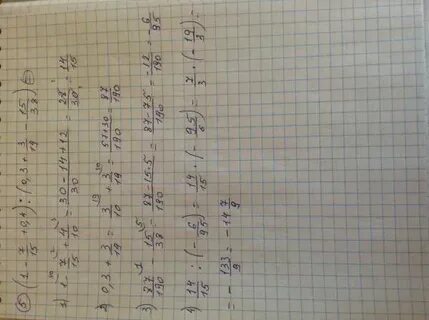 ⑤ (1 - 7/15 + 0,4) : (0,3 + 3/19 - 15/38) =
1) 1 - 7/15 + 4/10 = (30-14+12)/30 = 28/30 = 14/15
2) 0,3 + 3/19 = 3/10 + 3/19 = (57+30)/190 = 87/190
3) 87/190 - 15/38 = (87-15·5)/190 = (87-75)/190 = 12/190 = 6/95
4) 14/15 : (-6/95) = 14/15 · (-95/6) = 7/3 · (-19/3) =
= -133/9 = -14 7/9